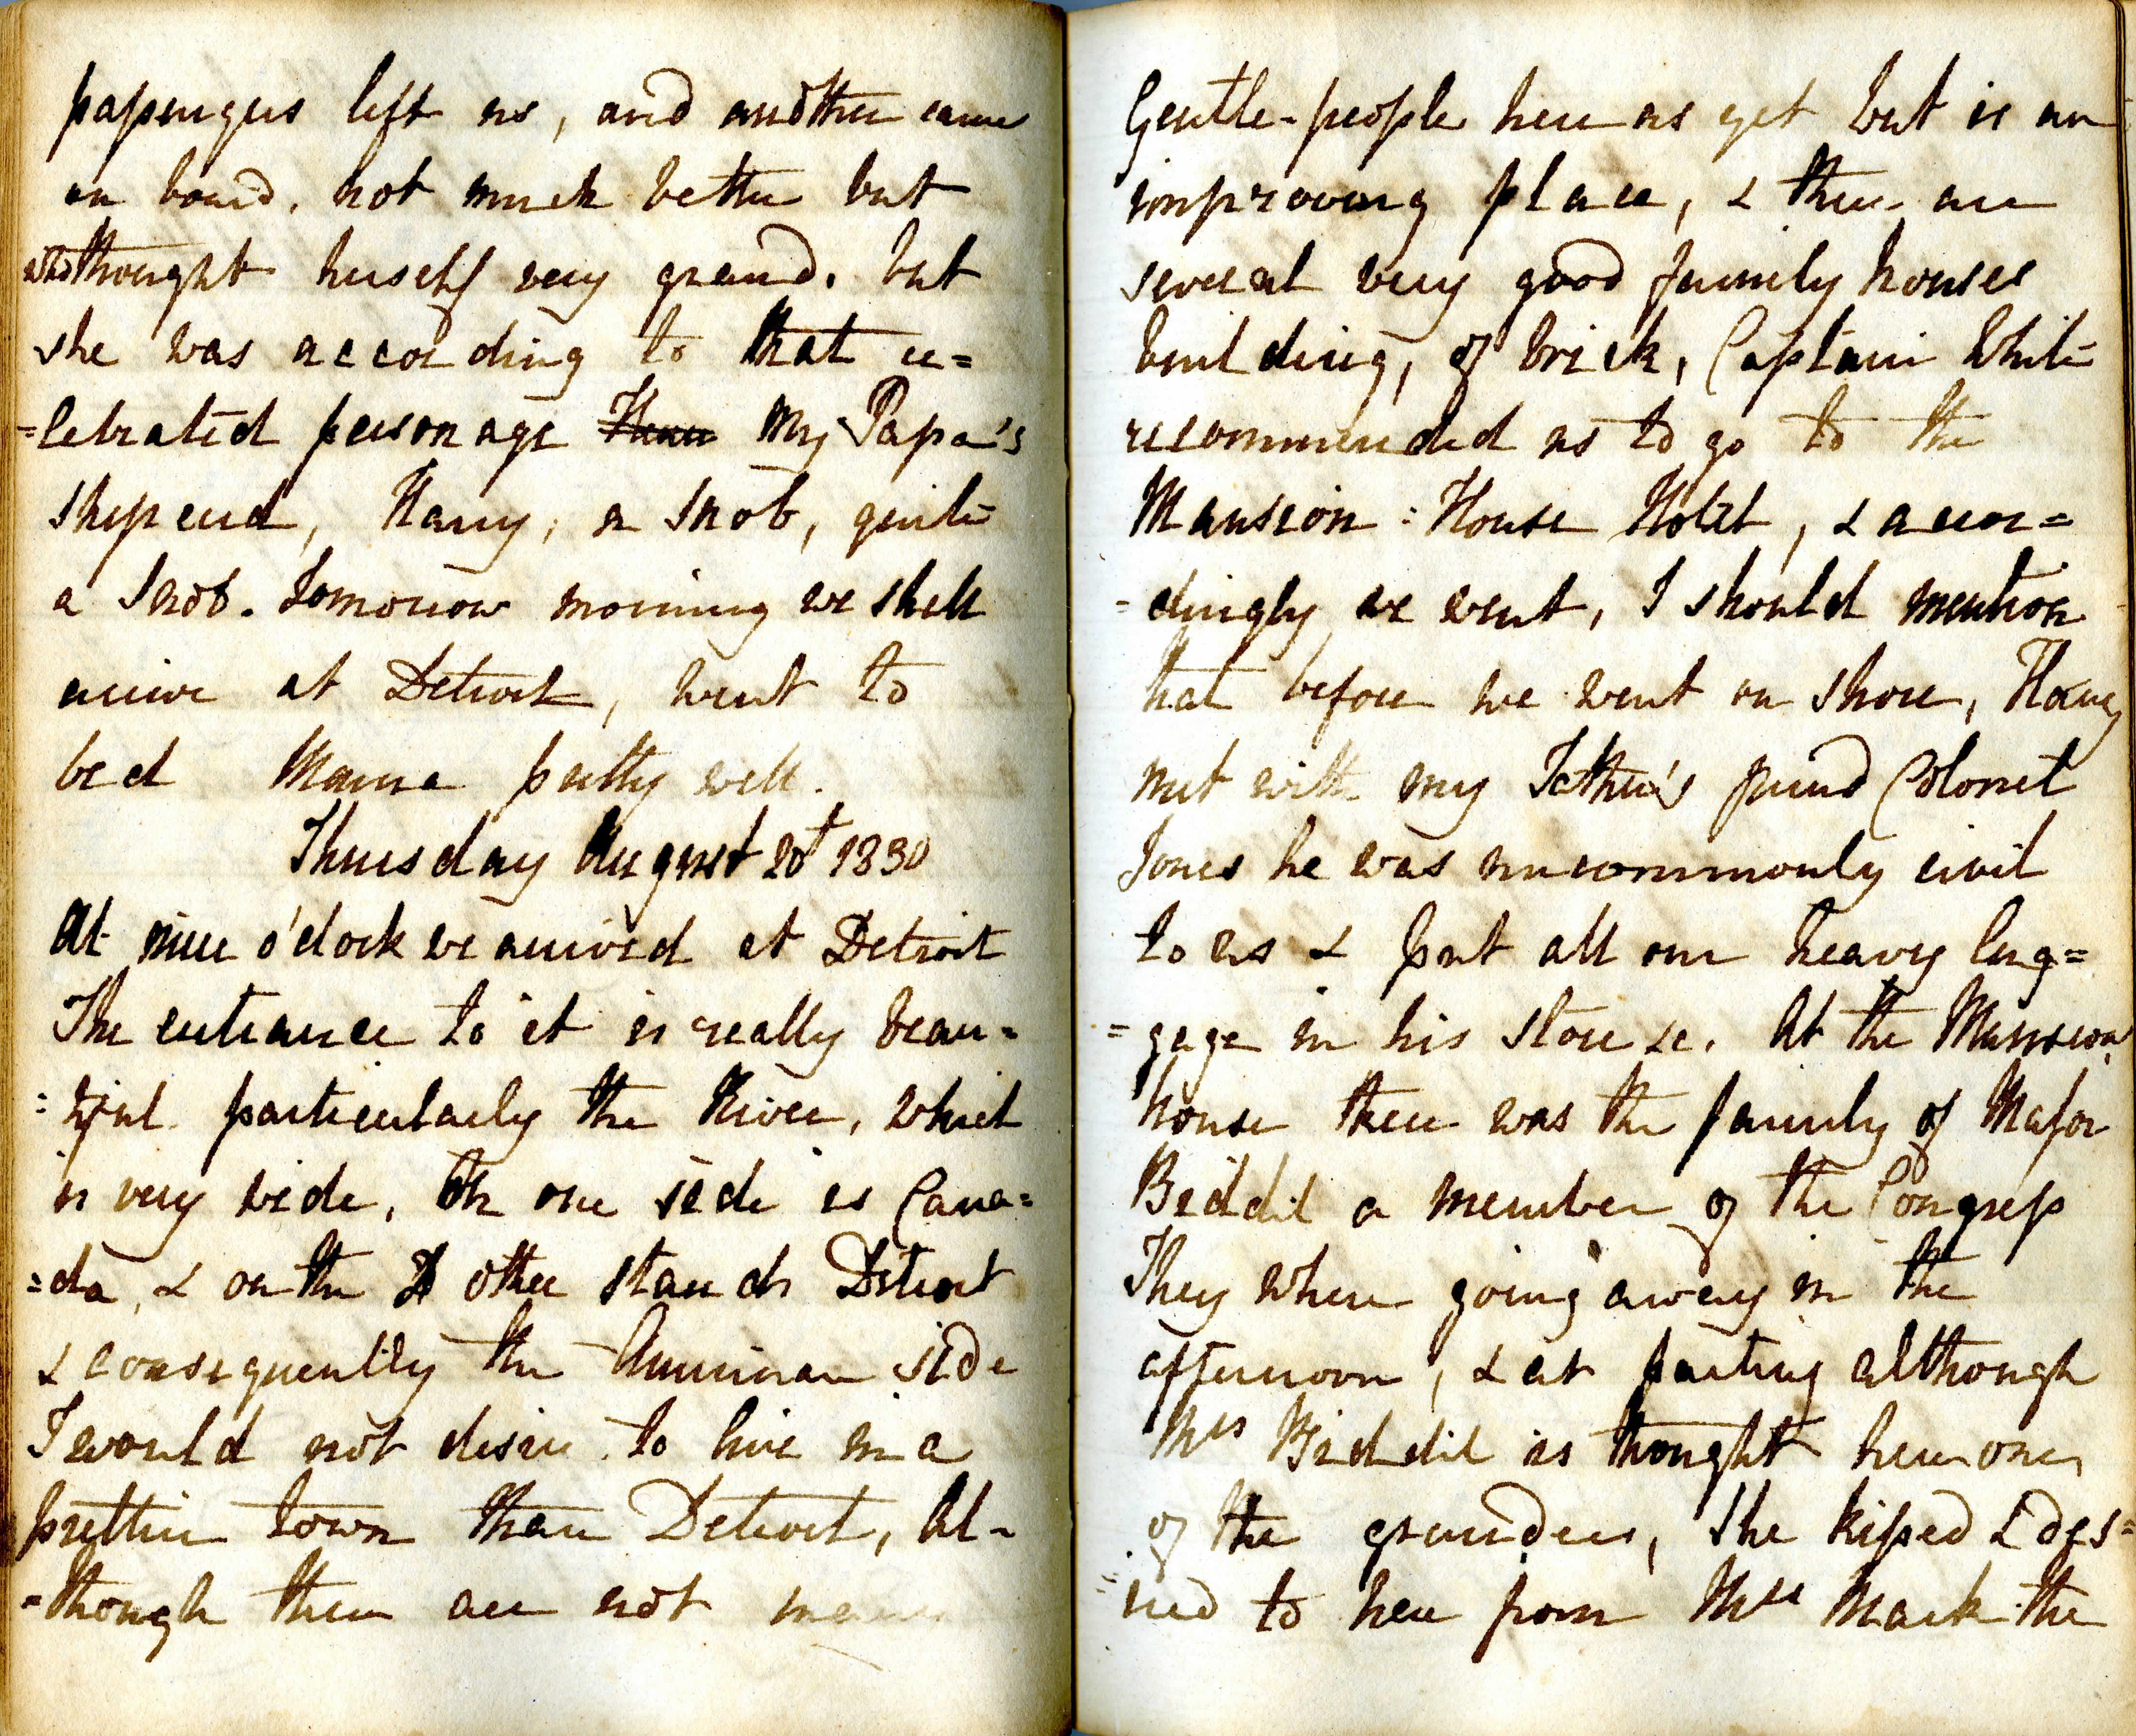 passengers left us, and another came
on board, not much better but
who thought herself very grand. but
she was according to that ce=
=lebrated personage My Papa's
Harry, a Snob, quite
a Snob. Tomorrow morning we shall
arrive at Detroit, went to
bed Mama pretty well.
Thursday August 20t 1830
At nine o'clock we arrived at Detroit
The entrance to it is really beau=
=tiful particularly the River, which
is very wide, On one side is Cana=
=da, & on the other stands Detroit
& consequently the American side
I would not desire to live in a
prettier town than Detroit, Al=
=though there are not many
Gentle-people here as yet but is an
improving place, & there are
several very good family houses
building, of brick, Captain White
recommended us to go to the
Mansion : House Hotel, & accor=
=dingly we went, I should mention
that before we went on shore, Harry
met with my Father's friend Colonel
Jones he was uncommonly civil
to us & put all our heavy lug=
=gage in his store &c. At the Mansion
house there was the family of Major
Biddil a member of the Congress
They where going away in the
afternoon, & at parting although
Mrs Biddil is thought here one
of the grandees, She kissed & des=
=ired to hear from Mrs Mack the